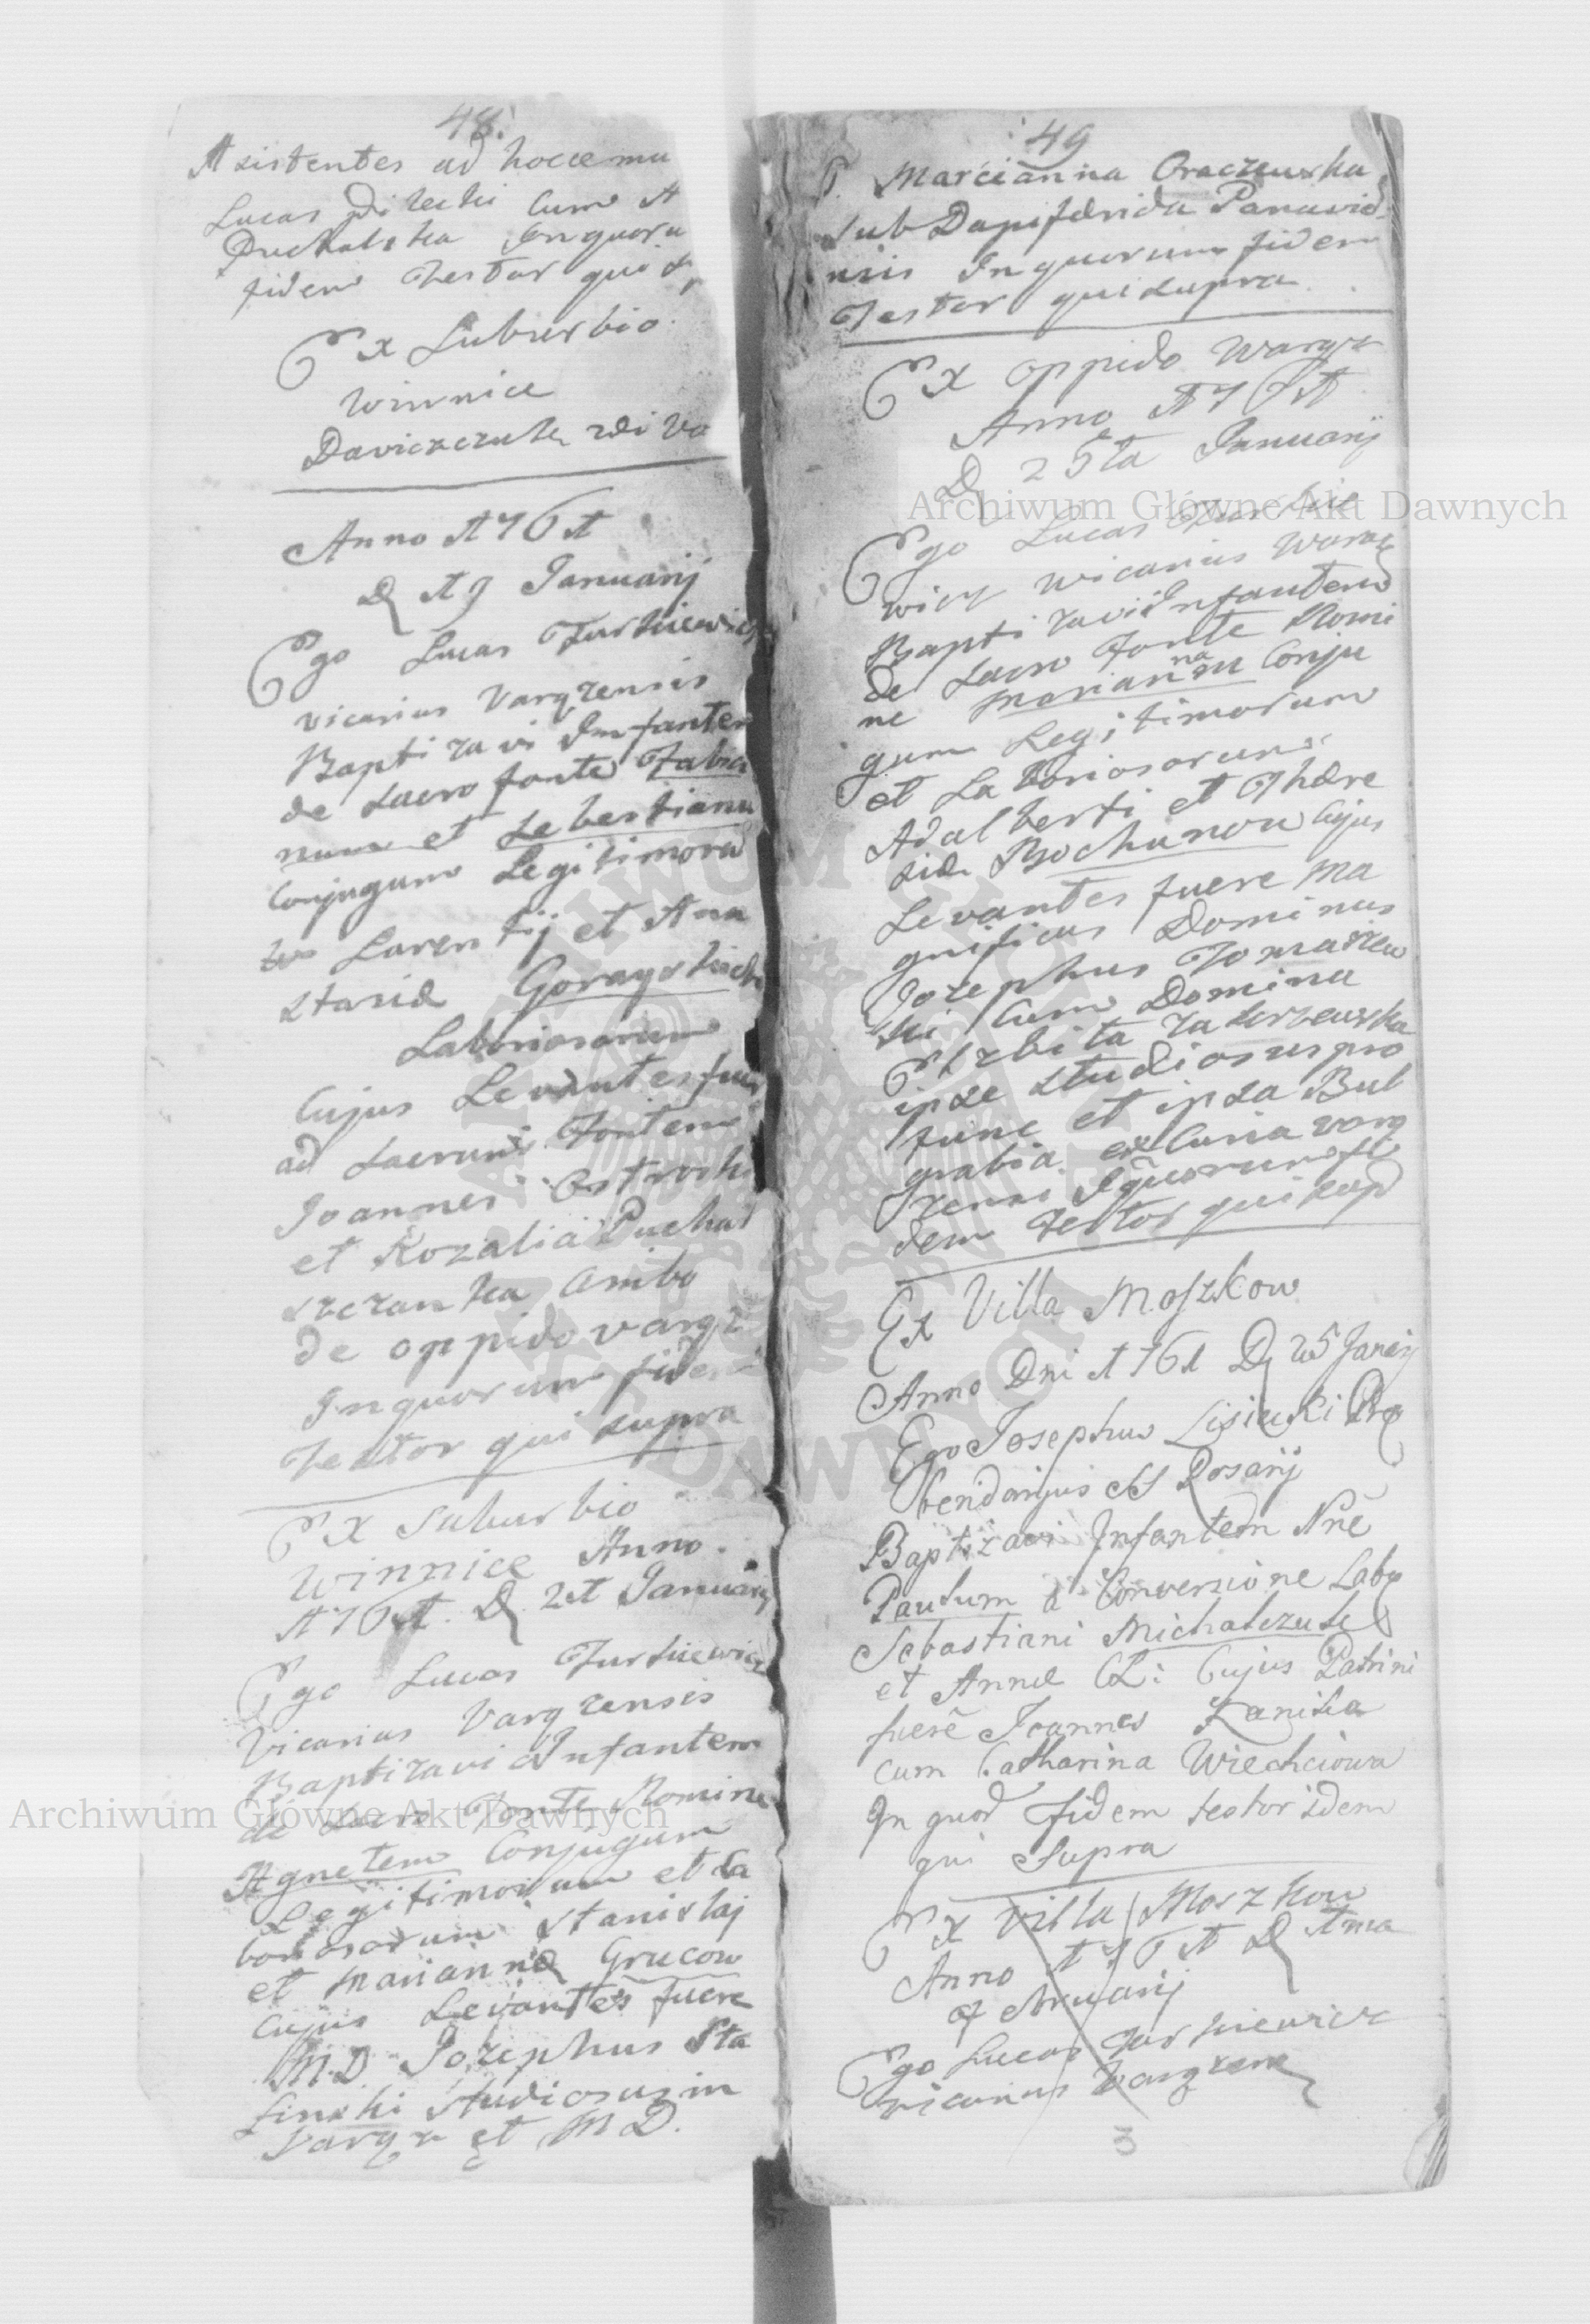 48.
Assistentes ad hocce mu
Lucas Cum A
Puchalska Inquoru
fidem Testor qui s
Ex Suburbio
Winnice
Anno A761
D A9 Januarij
Ego Lucas Turkiewicz
vicarius Varqzensis
Baptizavi Infantem
de Sacro fonte Fabia
num et Sebestianu
Conjugum Legitimoru
Laventij et Ana
stasiæ Goraystich
Laboriosorum
Cujus Levantes fuer
ad Sacrum Fontem
Joannes Ostroski
et Rozalia Puchal
szczanka ambo
de oppido varqz
Inquorum fidem
Testor qui supra
Ex Suburbio
Winnice Anno
A761 D 21 Januarij
Ego Lucas Turkiewicz
Vicarius Varqzensis
Baptizavi Infantem
de Sacro Fonte Nomine
Agnetem Conjugum
Legitimorum et La
boriosorum Stanislaj
et Mariannæ Grucow
Cujus Levantes fuere
M.D. Jozephus Sta
sinski Studiosus in
Varqz et M D.
49
P. Marcianna Oraczewska
Sub Dapiferida Parnavi
nsis Inquorum fidem
Testor qui supra
Ex oppido Warqz
Anno A761
D 25ta Januarij
Ego Lucas Turkie
wicz wicarius Warqz
Baptizavi Infantem
de Sacro Fonte Nomi
ne Mariannam Conju
gum Legitimorum
et Laboriosorum
Adalberti et There
siæ Bochunow Cujus
Levantes fuere Ma
gnificus Dominus
Jozephus Tomaszew
ski Cum Domina
Elzbita Zakrzewska
ipse studiosus pro
tunc et ipsa Bul
grabia ex Curia varq
zensi Iquorum fi
dem Testor qui sup
Ex Villa Moszkow
Anno Dni A761 D 25 Januarij
Ego Josephus Lisiecki Præ
bendarijus SS Rosarij
Baptizavi Infantem Nne
Paulum a Conversione Labo
Sebastiani Michalczuk
et Annæ CL: Cujus Patrini
fuere Joannes Kanika
cum Catharina Wiechciowa
In quor fidem testor idem
qui Supra
Ex Villa Moszkow
Anno A761 D Ama
Februarij
Ego Lucas Turkiewicz
vicarius Varqzens
3
Archiwum Główne Akt Dawnych
Archiwum Główne Akt Dawnych
ARCHIWUM GŁÓWNE AKT DAWNYCH